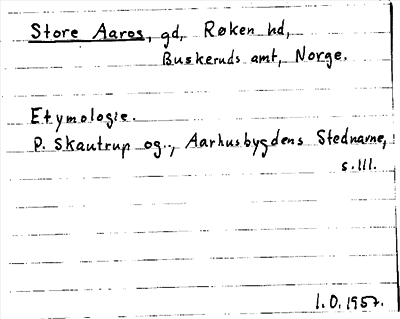 Store Aaros, gd, Røken hd,
Buskeruds amt, Norge.
Etymologie.
P. Skautrup og.., Aarhusbygdens Stednavne,
s.111.
1.O.1957.